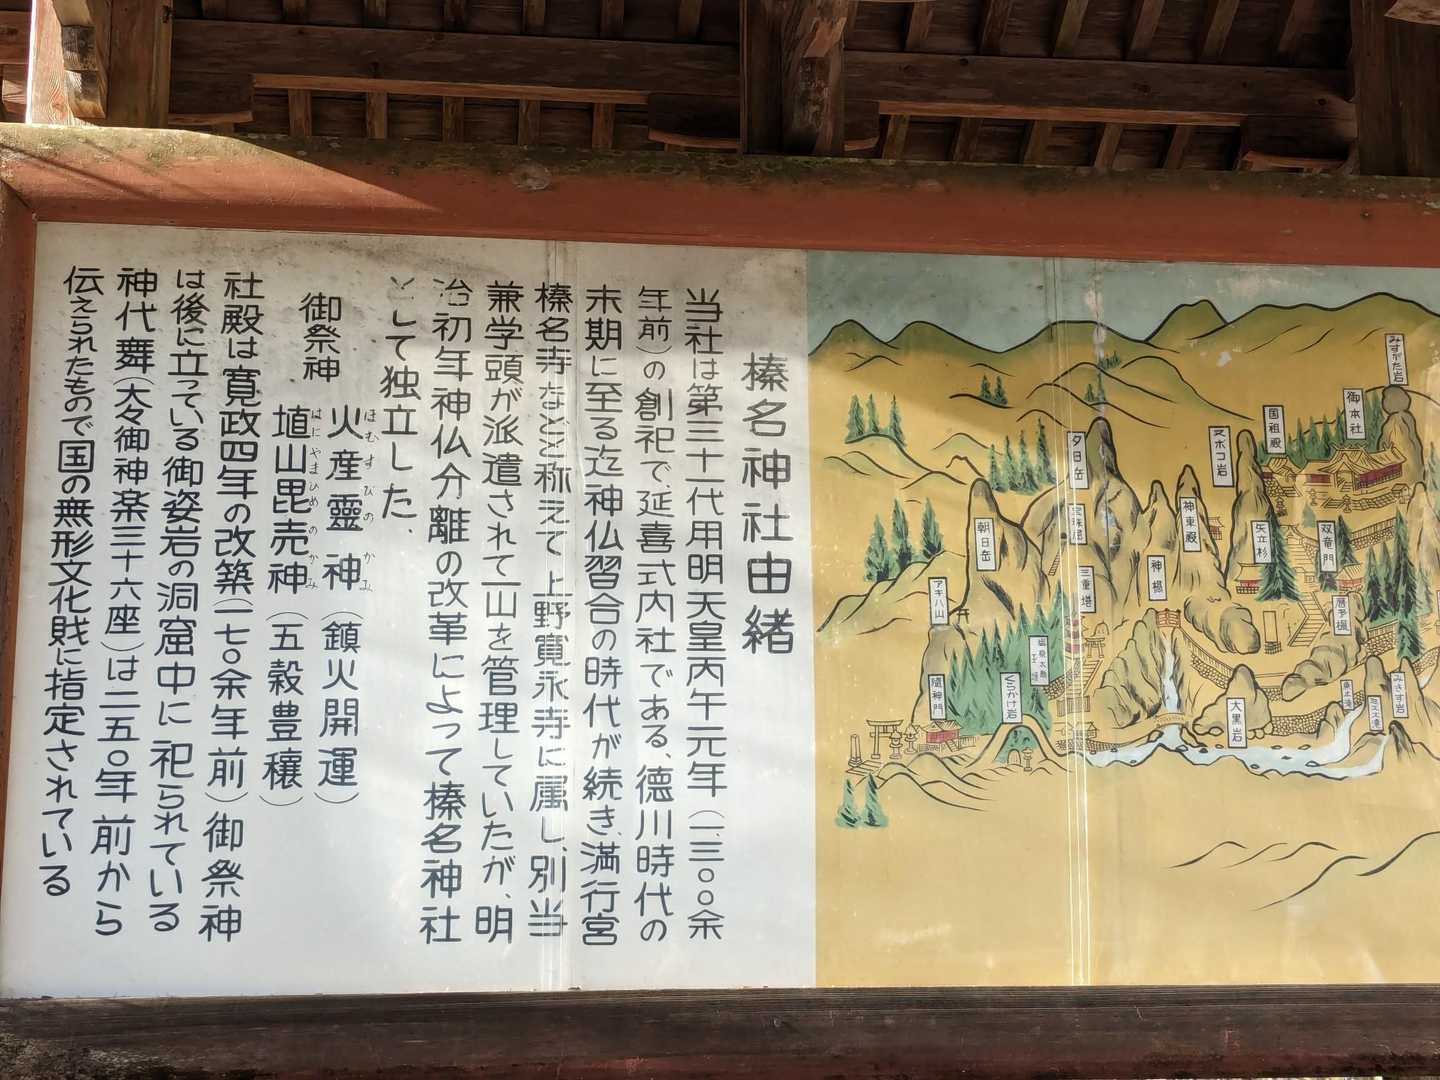 榛名神社由緒
当社は第三十一代用明天皇丙午元年(一、三〇〇余
年前)の創祀で延喜式内社である、徳川時代の
末期に至る迄神仏習合の時代が続き、満行宮
榛名寺などと称えて上野寛永寺に属し、別当
兼学頭が派遣されて一山を管理していたが、明
治初年神仏分離の改革によって榛名神社
として独立した、
御祭神
火産霊神(鎮火開運)
ほむすびのかみ
埴山毘売神(五穀豊穣)
はにやまひめのかみ
社殿は寛政四年の改築(一七〇余年前)御祭神
は後に立っている御姿岩の洞窟中に祀られている
神代舞(大々御神楽三十六座)は二五〇年前から
伝えられたもので国の無形文化財に指定されている
みすがた岩
御本社
国祖殿
ヌホコ岩
夕日岳
神東殿
朝日岳
矢立杉
双竜門
神橋
三重塔
アキハ山
隨神門
くらかけ岩
大黒岩
みさす岩